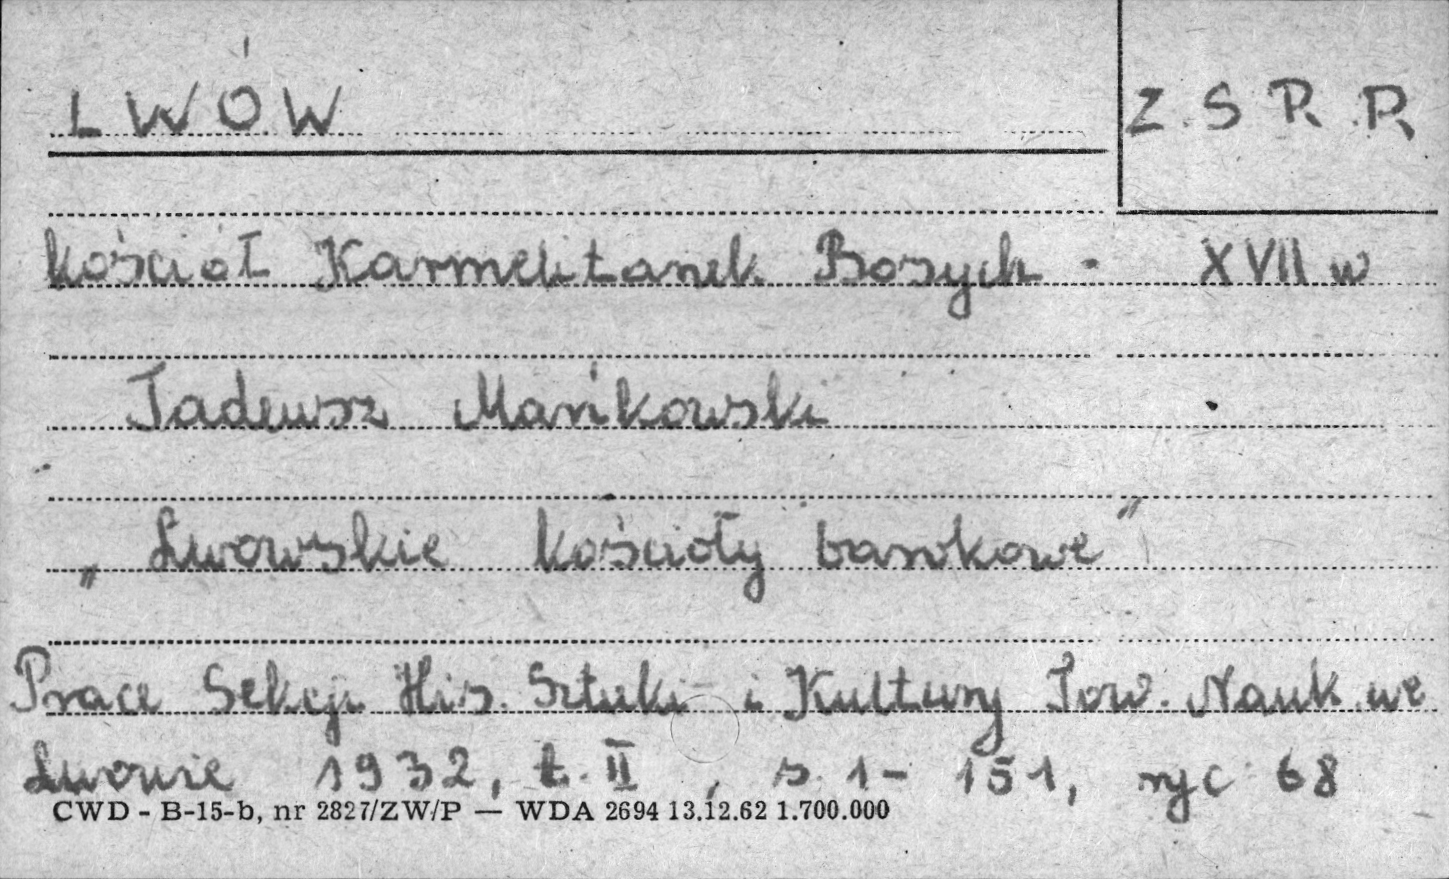 LWÓW
Z.S.R.R.
Kościół Karmelitanek Bosych - XVII w
Tadeusz Mańkowski
„Lwowskie kościoły barokowe"
Prace Sekcji His. Sztuki i Kultury Tow. Nauk. we
Lwowie 1932, t. II, s. 1-151, ryc 68
CWD - B-15-b, nr 2827/ZW/P — WDA 2694 13.12.62 1.700.000